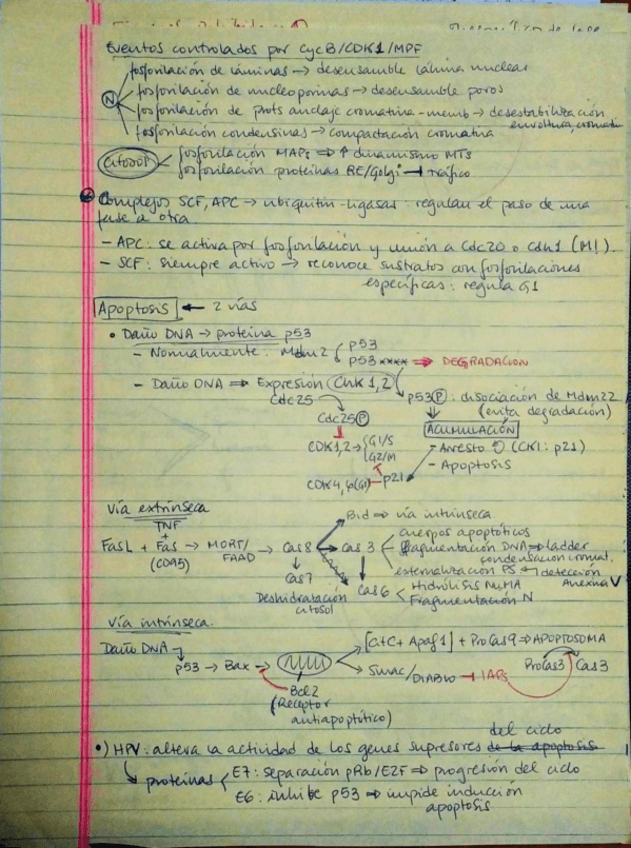 Eventos controlados por CycB/CDK1/MPF
fosforilación de láminas → desensamble lámina nuclear
fosforilación de nucleoporinas → desensamble poros
N
fosforilación de prots anclaje cromatina-memb → desestabilización
envoltura, cromatin
fosforilación condensinas → compactación cromatina
citosol
fosforilación MAPs ⇒ ↑ dinamismo MTs
fosforilación proteínas RE/Golgi → tráfico
Complejos SCF, APC → ubiquitin-ligasas: regulan el paso de una
fase a otra.
- APC: se activa por fosforilación y unión a Cdc20 o Cdh1 (M!).
- SCF: siempre activo → reconoce sustratos con fosforilaciones
específicas: regula G1
Apoptosis ← 2 vías
• Daño DNA → proteína p53
- Normalmente: Mdm2
p53
p53 xxxx ⇒ DEGRADACION
- Daño DNA ⇒ Expresión Chk 1,2
Cdc25
p53 P : disociación de Mdm22
(evita degradación)
Cdc25 P
ACUMULACIÓN
CDK1,2 → G1/S
G2/M
- Arresto (CKI: p21)
- Apoptosis
CDK4,6(G1) p21
Vía extrínseca
TNF
+
FasL + Fas → MORT/FAAD → Cas8 → Cas 3
(CD95)
Bid ⇒ vía intrínseca
cuerpos apoptóticos
fragmentación DNA ⇒ ladder
condensación cromat.
externalización PS ← detección
Anexina V
Cas7
Cas6
Hidrólisis NuMA
Fragmentación N
Deshidratación
citosol
Vía intrínseca.
Daño DNA
p53 → Bax →
[CitC + Apaf1] + ProCas9 ⇒ APOPTOSOMA
Smac/DIABLO ⊣ IAPs
ProCas3 Cas3
Bcl2
(Receptor
antiapoptótico)
del ciclo
•) HPV: altera la actividad de los genes supresores de la apoptosis
proteínas
E7: separación pRb/E2F ⇒ progresión del ciclo
E6: inhibe p53 ⇒ impide inducción
apoptosis